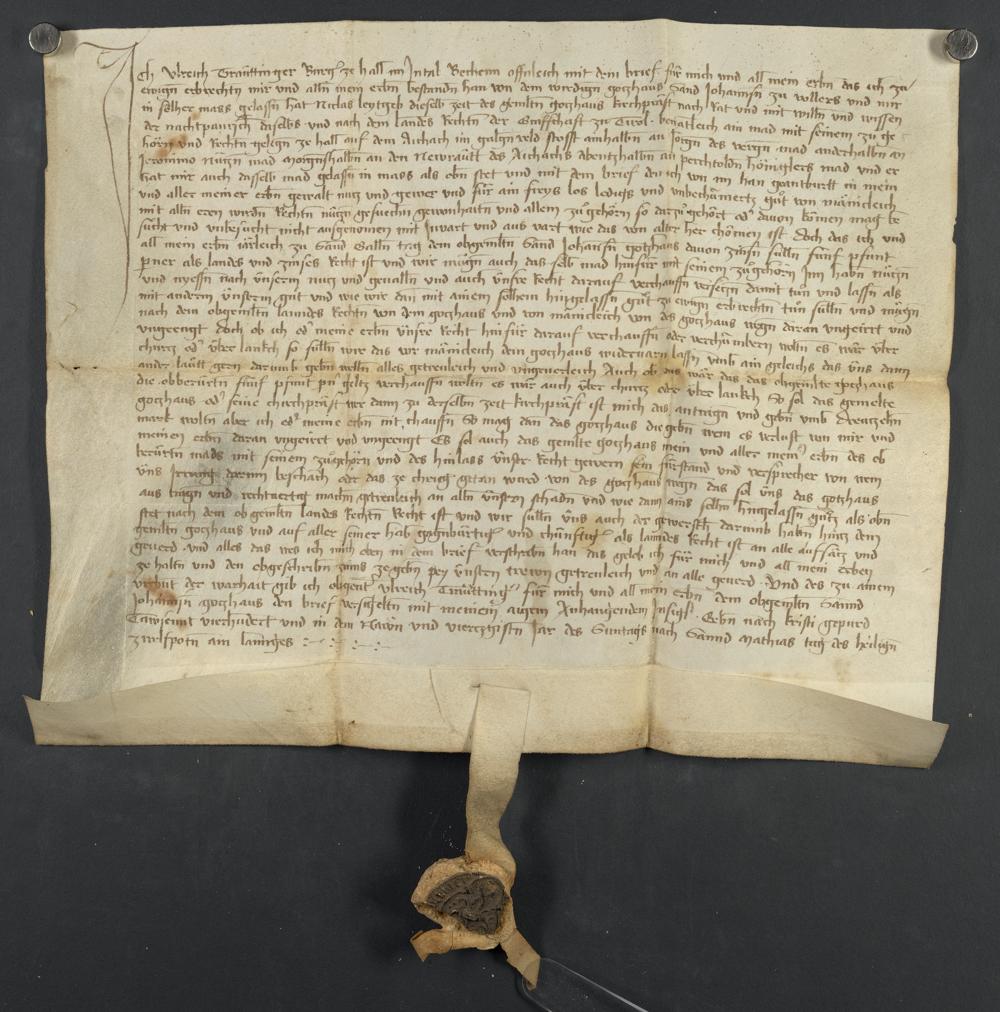 Ich Ulreich Träuttinger Burgr ze hall im Intal Bechenn offenleich mit dem brief für mich und all mein erbn das ich zu
ewign erbrechtn mir und alln mein erbn bestandn han von dem wirdign gotzhaus Sand Johannsn zu vollers und mir
in solher mass gelassn hat Niclas leytgeb dieselb zeit des gemeltn gotzhaus kirchpräst nach Rat und mit willn und wissen
der nachtpaurschaft daselbs und nach dem landes Rechtn der Graffschaft zu Tirol benantleich ain mad mit seinem zu ge
hörn und Rechtn gelegn ze hall auf dem Aichach im galgnveld stosst ainhalbn an Jörgn des vergn mad anderhalbn an
Jeronimo mad morgnshalbn an den Newräutt des Aichachs abentzhalbn an perchtoldn mad und er
hat mir auch dasselb mad gelassn in mass als obn stet und mit dem brief den ich von im han geantburtt in mein
und aller meiner erbn gewalt nutz und gewer und für ain freys los ledigs und unbechümertz gut von mänicleich
mit alln eren wirdn Rechtn nützn gesuechn gewonhaitn und allem zugehörn so darzu gehört odr davon kömen mag be
sucht und unbesucht nicht ausgenomen mit Invart und aus vart wie das von alter her chömen ist doch das ich und
all mein erbn järleich zu Sand Galln tag dem obgemeltn Sand Johannsn gotzhaus davon zinsn sülln fünf pfunt
perner als landes und zinses Recht ist und wir mügn auch das selb mad hinfür mit seinem zugehörn Inn habn nützn
und nyessn nach unserm nutz und gevalln und auch unsre Recht darauf verchauffn versetzn damit tun und lassn als
mit anderm unserm gut und wie wir dan mit ainem solhem hingelassn gut zu ewign erbrechtn tun sülln und mügn
nach dem obgemeltn lanndes Rechtn von dem gotzhaus und von mänicleich von des gotzhaus wegn daran ungeirrt und
ungeengt doch ob ich odr meine erbn unsre Recht hinfür darauf verchauffn oder verchümbern woltn es wär uber
churtz odr uber lankch so sülln wir das vor mänicleich dem gotzhaus widervarn lassn umb ain geleichs das uns dann
ander läutt gern darumb gebn woltn alles getreuleich und ungeverleich Auch ob das wär das das obgemelte gotzhaus
die obberürtn fünf pfunt pnr geltz verchauffn woltn es wär auch uber churtz oder uber lankch So sol das gemelte
gotzhaus odr seine chirchpräst wer dann zu derselbn zeit kirchpräst ist mich das antragn und gebn umb dreutzehn
mark woltn aber ich odr meine erbn nit chauffn So mag dan das gotzhaus die gebn wem es verlust von mir und
meinen erbn daran ungeirrt und ungeengt Es sol auch das gemelte gotzhaus mein und aller meinr erbn des ob
berürtn mads mit seinem zugehörn und des hinlass unsr Recht gewern sein fürstand und versprecher von wem
uns Irrung darinn beschäch oder das ze chrieg getan wurd von des gotzhaus wegn das sol uns das gotzhaus
aus tragn und rechtvertig machn getreuleich an alln unsern schadn und wie dann ains solhn hingelassn gutz als obn
stet nach dem obgemeltn landes Rechtn Recht ist und wir sülln uns auch der gewerschft darumb habn hintz dem
gemeltn gotzhaus und auf aller seiner hab gegnbürtigr und chünftigr als lanndes Recht ist an alle auffsätz und
geverd und alles das des ich mich oben in dem brief verschribn han das gelob ich für mich und all mein erben
ze haltn und den obgeschribn zinns ze gebn pey unsern trewn getreuleich und an alle geverd Und des zu ainem
urchut der warhait gib ich obgent Ulreich Träuttingr für mich und all mein erbn dem obgemeltn Sannd
Johannsn gotzhaus den brief versigeltn mit meinem aigem Anhangendem Insigl Gebn nach Kristi gepurd
Tawsennt vierhundert und in dem Newn und viertzgistn Jar des Suntags nach Sannd Mathias tag des heilign
zwelfpotn am lannges